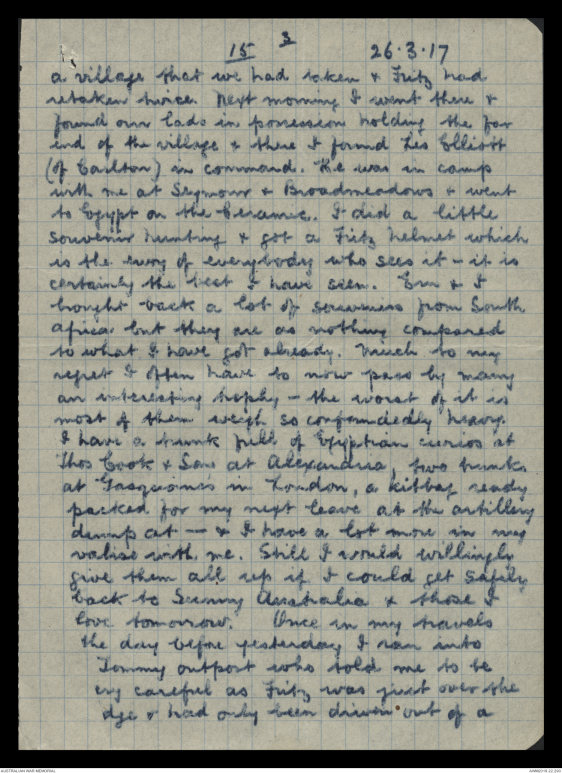 3
15 26.3.17
a village that we had taken & Fritz had
retaken twice. Next morning I went there &
found our lads in possession holding the far
end of the village & there I found Les Elliott
(of Carlton) in command. He was in camp
with me at Seymour & Broadmeadows & went
to Egypt on the Ceramic. I did a little
souvenir hunting & got a Fritz helmet which
is the envy of everybody who sees it - it is
certainly the best I have seen. Ern & I
bought back a lot of souvenirs from South
Africa but they are as nothing compared
to what I have got already. Much to my
regret I often have to now pass by many
an interesting trophy - the worst of it is
most of them weigh so confoundedly heavy.
I have a trunk full of Egyptian curios at
Thos Cook & Son at Alexandria, two trunks
at Gasquoine's in London, a kitbag ready
packed for my next leave at the artillery
dump at — & I have a lot more in my
valise with me. Still I would willingly
give them all up if I could get safely
back to Sunny Australia & those I
love tomorrow. Once in my travels
the day before yesterday I ran into
Tommy outpost who told me to be
ery careful as Fritz was just over the
dge & had only been driven out of a
AUSTRALIAN WAR MEMORIAL